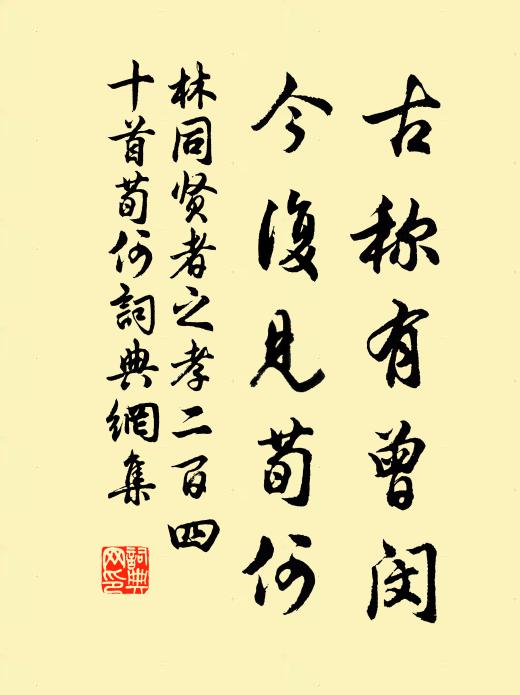 古称有曾闵
今復见荀何
林同贤者之孝二百四
十首荀何詞典網集
詞典
网印